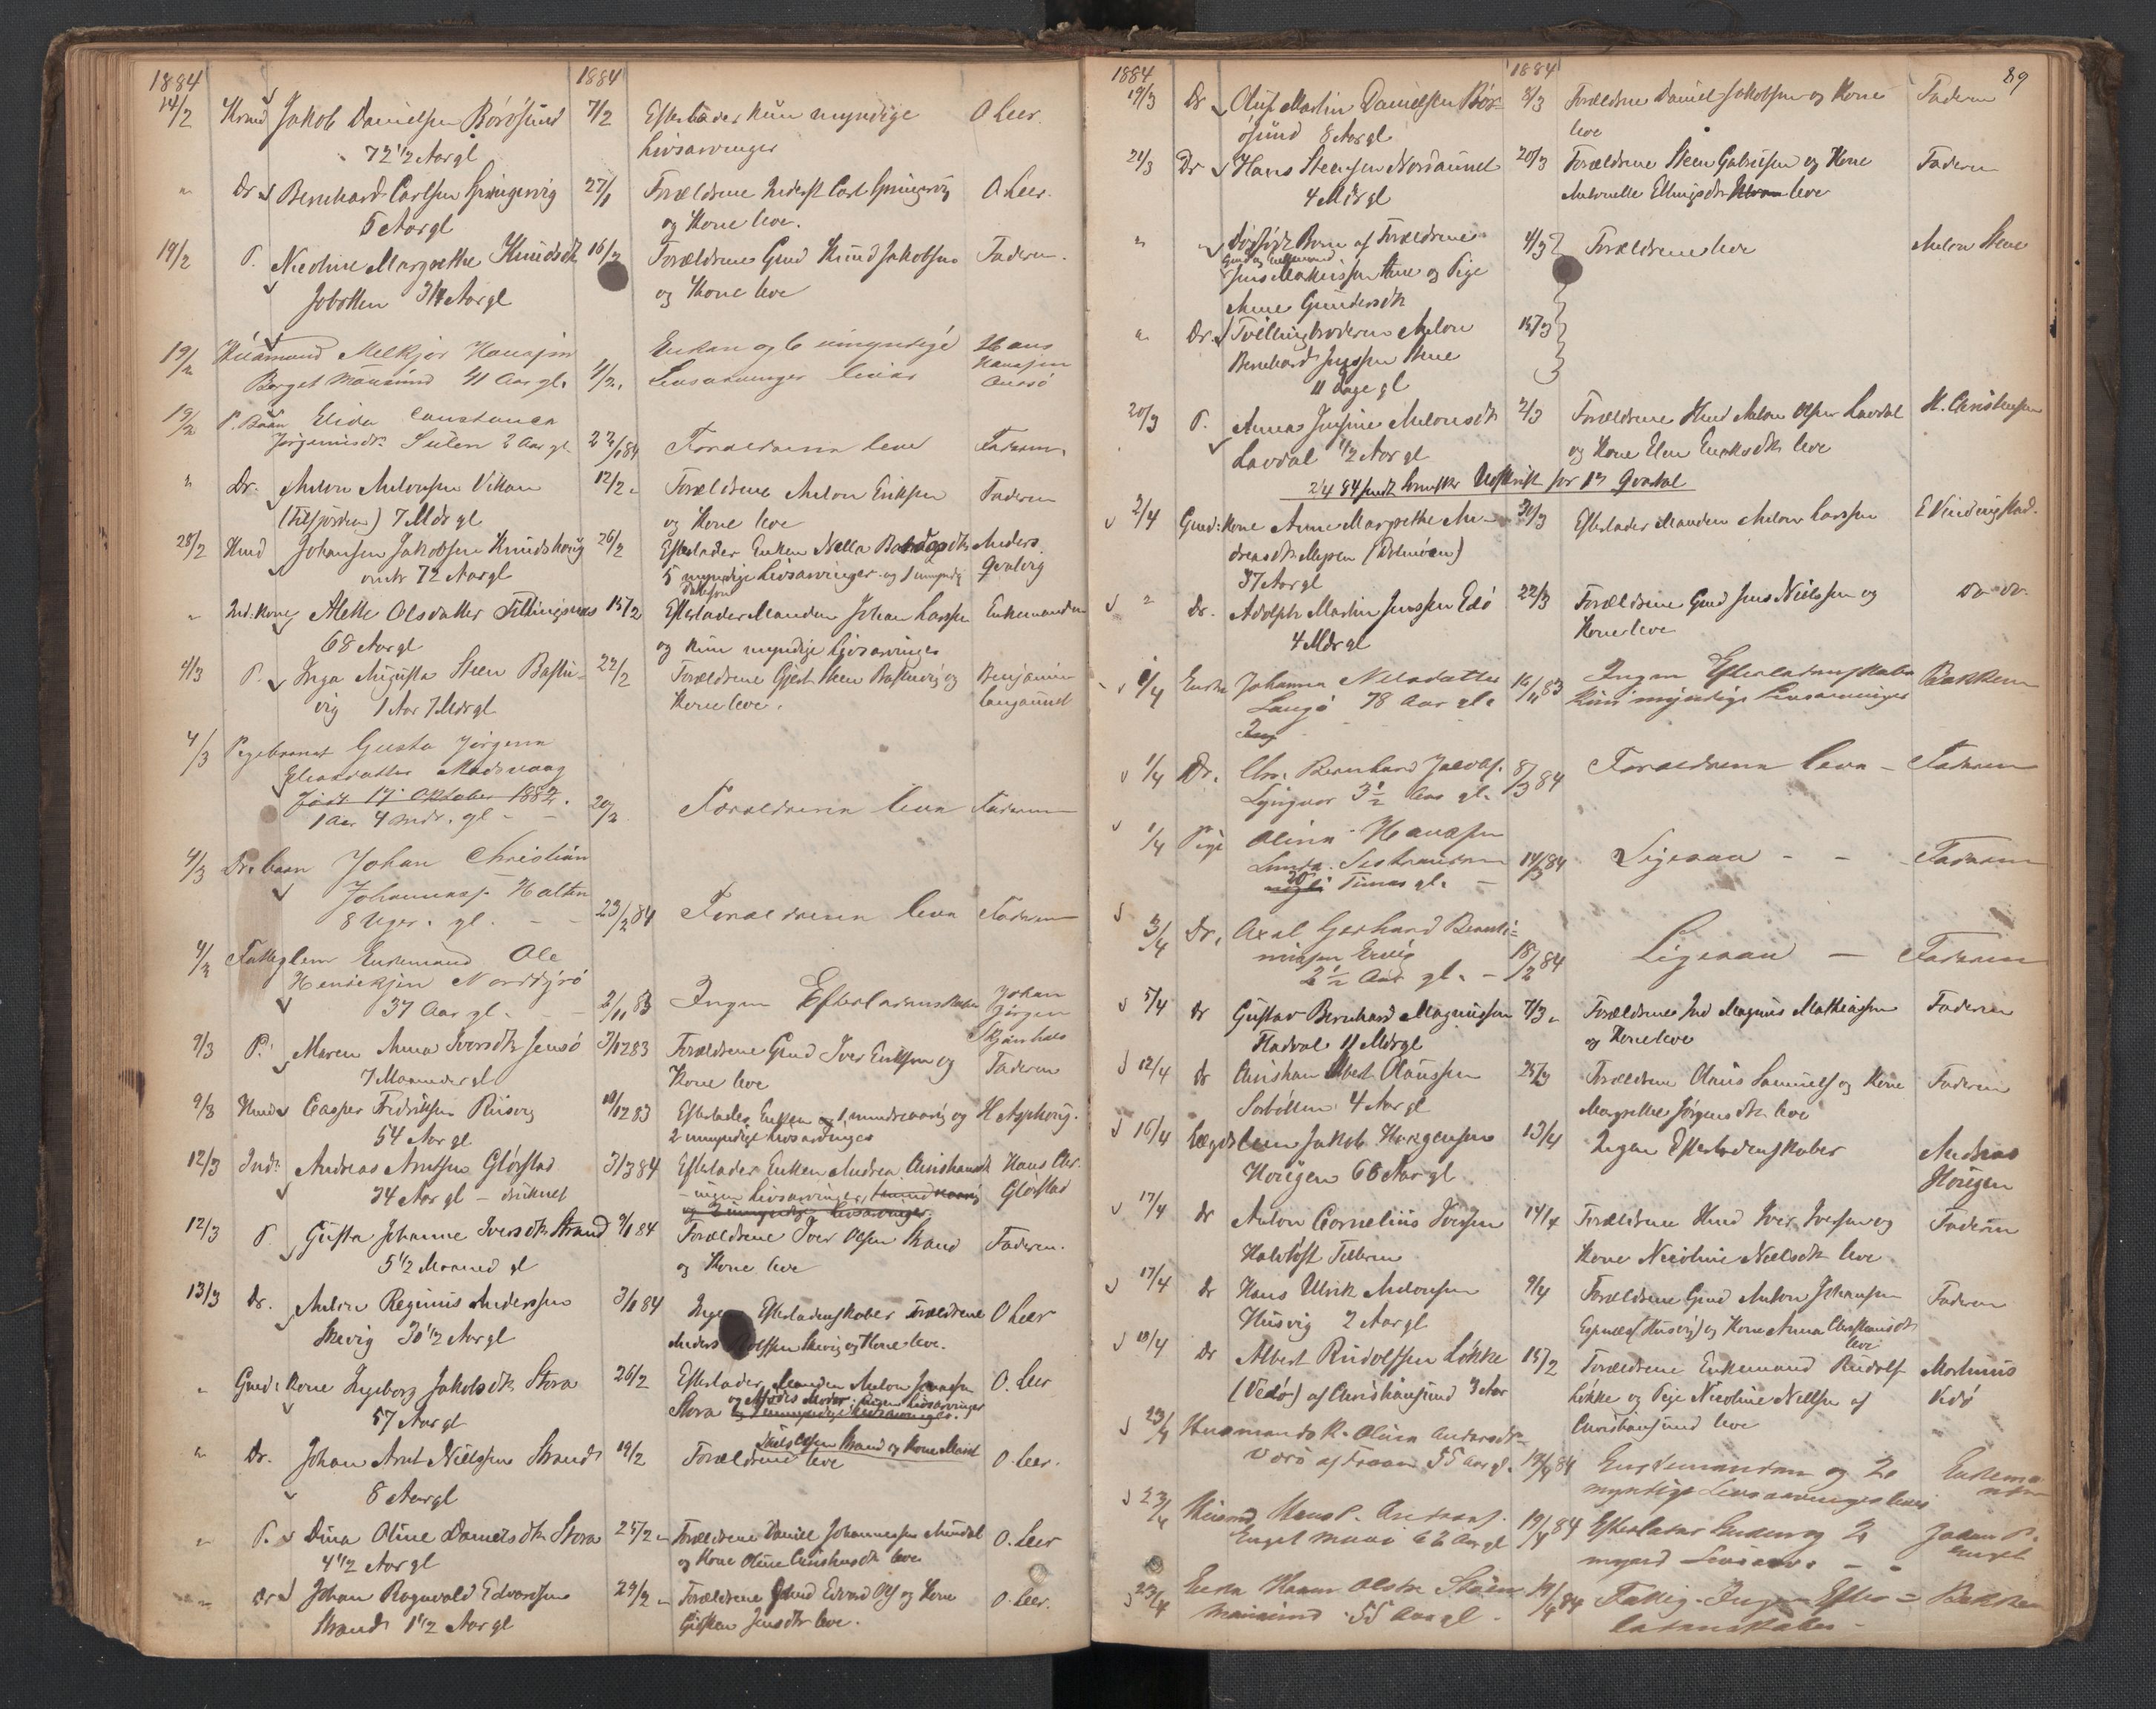 1884 1884
14/2 Kmd Jakob Danielsen Börösund 7/2 Efterlader kun myndige O Leer.
72 1/2 Aar gl Livsarvinger
" Dr Bernhard Carlsen Gringervig 27/1 Forældrene Inderst Carl Gringervig O Leer.
5 Aar gl og Kone leve.
19/2 P. Nicoline Margrethe Knudsdtr 16/2 Forældrene Gmd Knud Jakobsen Faderen.
Jobotten 3 Aar gl og Kone leve
19/2 Husmand Melkjor Hansen Enkan og 6 umyndige Hans
Berget Mausund 41 Aar gl. 4/2. Livsarvinger lever Hansen
19/2 P. Barn Elida Constance
Jörginusdr. Sulen 2 Aar gl. 22/1 84 Forældrene leve Faderen.
" Dr. Anton Antonsen Vikan 12/2 " Forældrene Anton Eriksen Faderen
(Tilfjorden) 7 Mdr gl og Kone leve
28/2 Kmd Johansen Jakobsen Knudshoug 26/2 Efterlader Enken Nella Anders
72 Aar gl 5 myndige Livsarvinger og 1 umyndig Qvalvig
" Ind. Kone Alette Olsdatter Tittingsnes 15/2 Efterlader Manden Johan Larssen Enkemanden
68 Aar gl og kun myndige Livsarvinger
4/3 P. Inga Augusta Steen Bastu- 22/2 Forældrene Gjert Steen Bastuvig og Benjamin
vig 1 Aar 7 Mdr gl Kone leve. Langaunet
4/3 Pigebarnet Gusta Jörgine
Eliasdatter Madsvaag
Födt 17 Oktober 1882.
1 Aar 4 Mdr. gl - - 20/2 Forældrene leve Faderen
4/3 Dr. barn Johan Christian
Johannes. Halten
8 Uger. gl. - - 23/2 84 Forældrene leve Faderen
4/3 Fattiglem Enkemand Ole
Henriksen Norddyrö
37 Aar gl. - - 2/11 83 Ingen Efterladenskaber Johan
Jörgen
9/3 P. Maren Anna Iversdtr Jensö 3/12 83 Forældrene Gmd Iver Eriksen og Skjånhals
7 Maaneder gl Kone leve Faderen
9/3 Casper Fredriksen Risvig 10/12 83 Efterlader Enken 1 mindreaarig og H Asphoug.
54 Aar gl 2 umyndige Livsarvinger
12/3 Indr. Andreas Arntsen Glörstad 3/3 84 Efterlader Enken Andrea Christiansdtr Hans Chr.
34 Aar gl - druknet - ingen Livsarvinger, Glörstad
og 2 umyndige Livsarvinger.
12/3 P Gusta Johanne Iversdtr Strand 9/1 84 Forældrene Iver Olsen Strand Faderen.
5 1/2 Maaned gl og Kone leve
13/3 Dr. Anton Reginus Anderssen 3/1 84 Efterladenskaber Forældrene O Leer
Skevig 30 1/2 Aar gl Anders Skevig og Kone leve.
" Gmd: Kone Ingeborg Jakobsdtr Stora 26/2 Efterlader Manden Anton O. Leer
og Afdödes Moder; ingen Livsarvinger
57 Aar gl Stora
" Dr. Johan Arnt Nielssen Strand 19/2 Forældrene leve O. Leer.
Niels Olsen Strand og Kone Marit
8 Aar gl
" P. Dina Oline Danielsdtr Stora 25/2 " Forældrene Daniel Johannessen O. Leer
4 1/2 Aar gl og Kone Oline leve
" Dr Johan Ragnvald Edvardsen 29/2 " Forældrene Edvard Ols og Kone O. Leer.
Strand 1 1/2 Aar gl Gjörken Jensdtr leve.
1884 1884 89
19/3 Dr Oluf Martin Danielsen Bör- 8/3 Forældrene Daniel Jakobsen og Kone Faderen
ösund 8 Aar gl leve
21/3 Dr Hans Steensen Nordaunet 20/3 Forældrene Steen Gabrielsen og Kone Faderen
4 Mdr gl Antonette Ellingsdtr leve
" " Dödfödt Barn af Forældrene 4/3 Forældrene leve Anton Stene
Gmd og Enkemand
Jens Mathissen Stene og Pige
Anne Gundersdtr
" Dr. Tvillingbroderen Anton 15/3
Bernhard Jenssen Stene
11 Dage gl
20/3 P. Annas Jensine Antonsdtr 2/3 Forældrene Kmd Anton Olsen Lavdal H. Christensen
Lavdal 1/2 Aar gl og Kone Elen Eriksdtr leve
2/4 84 sendt Udskrift for 1ste Qvartal
2/4 Gmd: Kone Anne Margrethe An- 31/3 Efterlader Manden Anton Larssen E Vindingstad.
dreasdtr (Dolmöen)
37 Aar gl
" Dr. Adolph Martin Jenssen Edö 22/3 Forældrene Gmd Jens Nielssen og do do.
4 Mdr gl Kone leve
1/4 Enke Johanna Nilsdatter 16/11 83 Ingen Efterladenskaber Bakken
Langö 78 Aar gl. Kun myndige Livsarvinger
1/4 Dr. Chr. Bernhard Jacobs. 8/3 84 Forældrene leve - Faderen
Lyngvær 3 1/2 Aar gl.
1/4 Pige Olina Hansen
Sistranden 14/3 84 Ligesaa - - Faderen
20 Timer gl. -
3/4 Dr. Axel Gerhard Beonti-
nussen Ervig 18/2 84 Ligesaa - Faderen
2 1/2 Aar gl. -
5/4 dr Gustav Bernhard Magnussen 7/3 " Forældrene Ind Magnus Mathiassen Faderen
Fladval 11 Mdr gl og Kone leve
12/4 dr Christian Albert Olaussen 25/3 Forældrene Olaus Samuels og Kone Faderen
Sörbotten 4 Aar gl Margrethe Jörgensdtr leve
16/4 Lægdslem Jakob Horgensen 13/4 Ingen Efterladenskaber Andreas
Hougen 66 Aar gl Hougen
17/4 dr Anton Cornelius Iversen 14/4 Forældrene Kmd Iver Iversen og Faderen
Tetteren Kone Nicoline Nielsdtr leve
17/4 dr Hans Ulrik Antonsen 9/4 Forældrene Gmd Anton Johansen Faderen
Husvig 2 Aar gl (Husvig) og Kone Anna Christiansdtr
leve
18/4 dr Albert Rudolfsen Lökke 15/2 Forældrene Enkemand Rudolf Martinus
(Vedö) af Christiansund 3 Aar Lökke og Pige Nicoline Nilsen af Vedö
Christiansund leve
23/4 Husmands K. Olina Andersdtr
Værö af Froan 55 Aar gl. 19/4 84 Enkemanden og 2 Enkema-
myndige Livsarvinger lever nden
23/4 Husmd Hans P. 19/4 84 Efterlader Enken og 2 Johan P.
Enget 62 Aar gl myndi Livsarv. - -
23/4 Enke Olsdtr 19/4 84 Fattig. Ingen Efter= Bakken
Mausund 55 Aar gl. ladenskaber -